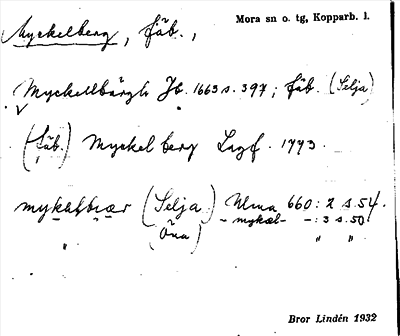 Myckelberg, fäb., Mora sn o. tg, Kopparb. l.
Myckellbärgh Jb. 1663 s. 397; fäb. (Selja)
(fäb.) Myckelberg Lagf. 1773.
(Selja) Ulma 660: 2 s. 54.
(Öna) - mykæl- -: 3 s. 50
" " "
Bror Lindén 1932